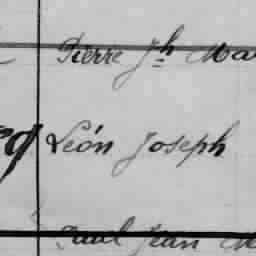 Pierre Jh Ma
Léon Joseph
Paul Jean M